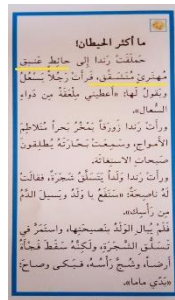 ما أكثر الحيطان!
حَملَقَت رَندا إلى حائِطٍ عَتيقٍ
مُهترِئٍ مُتَشَقِّقٍ، فَرأت رَجُلاً يَسْعُلُ
ويَقولُ لَها: «أعطِيني مِلعَقَةً مِن دَواءِ
السُّعالِ».
ورأت رَندا زَورَقاً يَمخُرُ بَحراً مُتَلاطِمَ
الأمواجِ، وسَمِعَت بَحّارَتَهُ يُطلِقونَ
صَيحاتِ الاستِغاثَةِ.
ورأت رَندا وَلَداً يَتَسَلَّقُ شَجَرَةً، فقالَت
لَهُ ناصِحَةً: «سَتَقَعُ يا وَلَدُ ويَسيلُ الدَّمُ
مِن رَأسِكَ».
فَلَم يُبالِ الوَلَدُ بِنَصيحَتِها، واستَمَرَّ في
تَسَلُّقِ الشَّجَرَةِ، ولَكِنَّهُ سَقَطَ فَجأةً
أرضاً، وشُجَّ رَأسُهُ، فبَكى وصاحَ:
«بَدّي ماما».